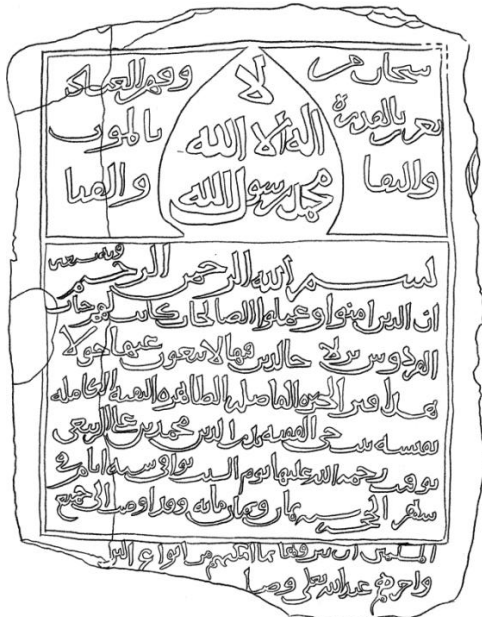 سبحان من
تعزز بالقدرة
والبقا
لا
اله الا الله
محمد رسول الله
وقهر العباد
بالموت
والفنا
بسم الله الرحمن الرحيم
ان الذين امنوا وعملوا الصالحات كانت لهم جنات
الفردوس نزلا خالدين فيها لا يبغون عنها حولا
هذا قبر الحرة الفاضلة الطاهرة النقية الكاملة
نفيسه الفقيه بدر الدين محمد بن علي الربعي
توفيت رحمة الله عليها يوم السبت ايام في
شهر الحجة سنة ثمان وثمان مايه وقد اوصت الى جميع
المسلمين ان يبروها بما امكنهم من انواع البر
واجرهم عند الله تعلى